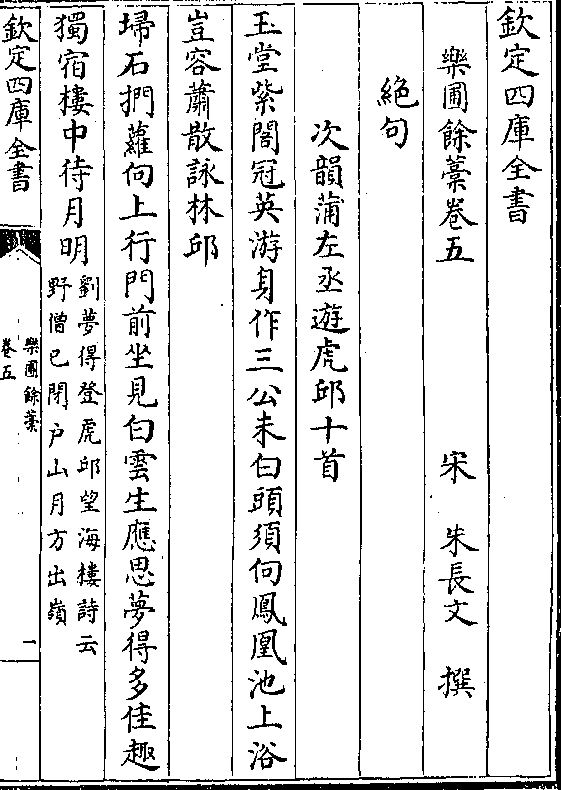 欽定四庫全書
樂圃餘藁卷五
宋 朱長文 撰
絕句
次韻蒲左丞遊虎邱十首
玉堂紫閤冠英游身作三公未白頭須向鳳凰池上浴
豈容蕭散詠林邱
埽石捫蘿向上行門前坐見白雲生應思夢得多佳趣
獨宿樓中待月明
劉夢得登虎邱望海樓詩云
野僧已閉户山月方出嶺
欽定四庫全書
樂圃餘藁
卷五
一